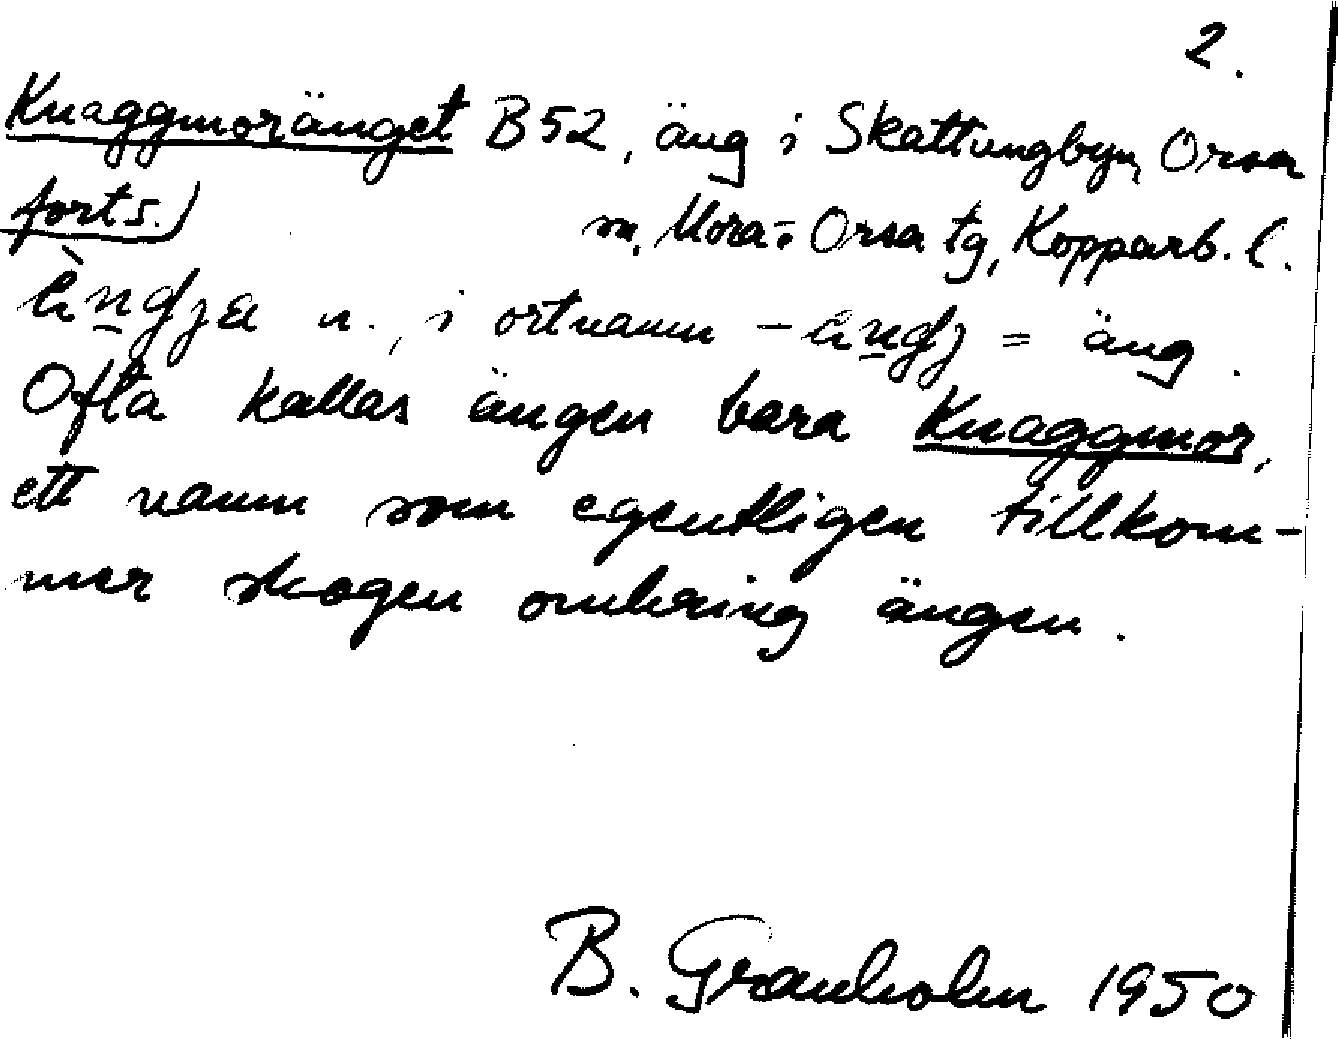 2.
Knaggmoränget B52, äng i Skattungbyn, Orsa
forts.) sn, Mora o. Orsa tg, Kopparb. l.
n., i ortnamn = äng.
Ofta kallas ängen bara Knaggmor,
ett namn som egentligen tillkom-
mer skogen omkring ängen.
B. Granholm 1950